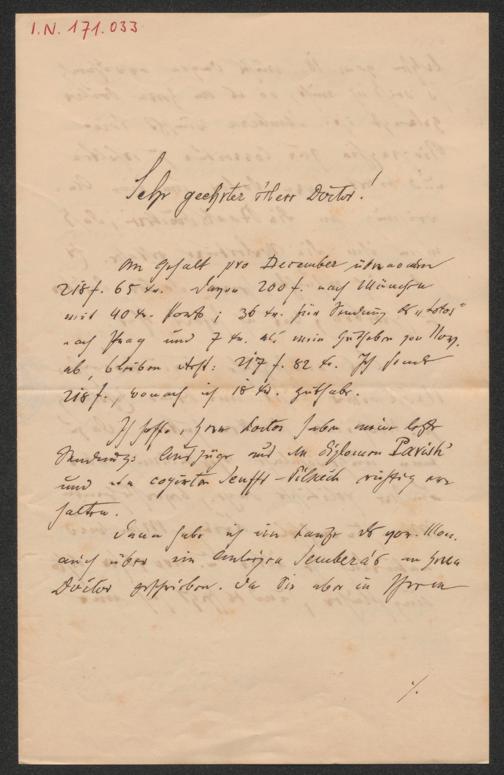 I.N. 171.033
Sehr geehrter Herr Doctor!
An Gehalt pro December
218 f. 65 kr. Davon 200 f. nach München
mit 40 kr. Porto; 36 kr. für Sendung des „Lotos"
nach Prag und 7 kr. als mein Guthaben von Nov.
ab, bleiben Rest: 217 f. 82 kr. Ich sende
218 f., wonach ich 18 kr. guthabe.
Ich hoffe, Herr Doctor haben meine letzte
Sendung: Auszüge aus den Diplomen Parish
und den Senfft-Pilsach richtig er-
halten.
Dann habe ich im Laufe des vor. Mon.
auch über ein Anliegen Sembera's an Herrn
Doctor geschrieben. Da Sie aber in Ihrem
./.